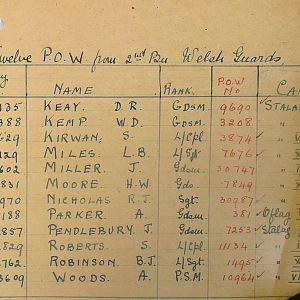 Twelve P.O.W from 2nd Bn Welsh Guards,
NAME RANK. P.O.W No
435 KEAY. D.R. GDSM. 9690 ✓ STALA
388 KEMP W.D. GDSM. 3208 ✓ "
629 KIRWAN, S. L/Cpl. 3874 ✓ "
429 MILES, L.B. L/Sgt. 7676 ✓ "
602 MILLER, J. Gdsm. 30747 "
831 MOORE, H.W. Gds. 7849 "
970 NICHOLAS R.J. Sgt. 30987 ✓ "
188 PARKER, A. Gdsm. 381 ✓ Oflag
857 PENDLEBURY, J. Gdsm. 7253 ✓ Stalag
829 ROBERTS, S. L/Cpl. 11134 ✓ "
762 ROBINSON, B.J. L/Sgt. 1495 ✓ "
3609 WOODS, A. P.S.M. 10964 ✓ "